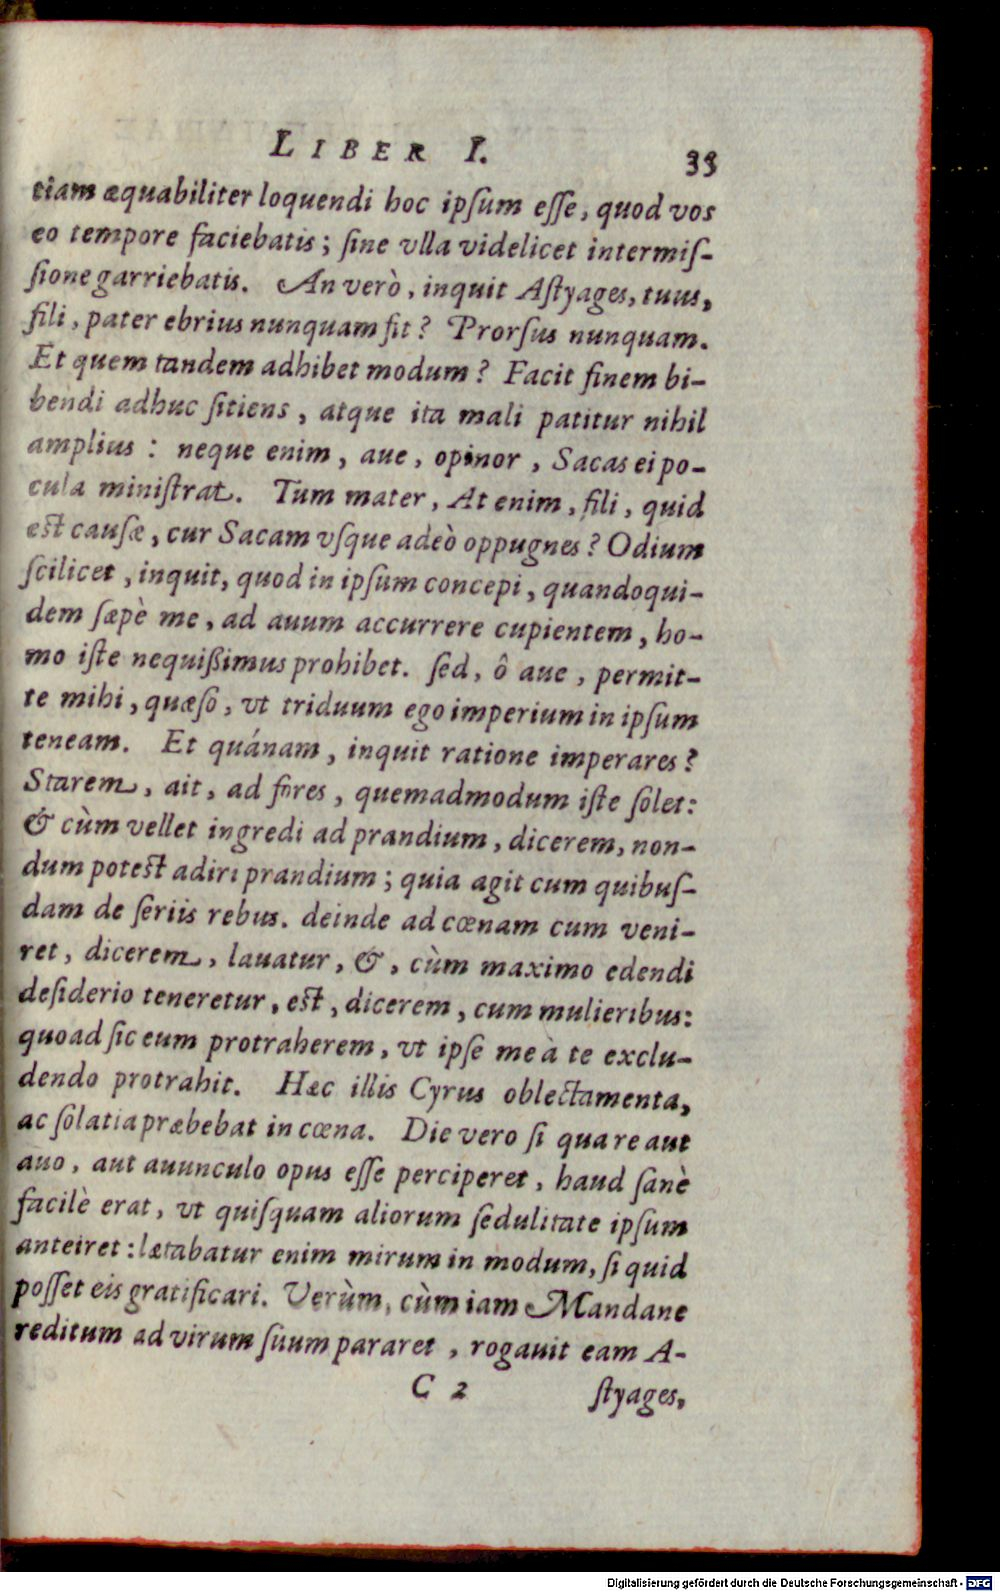 LIBER I. 35
tiam æquabiliter loquendi hoc ipſum eſſe, quod vos
eo tempore faciebatis; ſine vlla videlicet intermiſ-
ſione garriebatis. An verò, inquit Aſtyages, tuus,
fili, pater ebrius nunquam fit? Prorſus nunquam.
Et quem tandem adhibet modum? Facit finem bi-
bendi adhuc ſitiens, atque ita mali patitur nihil
amplius: neque enim, aue, opinor, Sacas ei po-
cula miniſtrat. Tum mater, At enim, fili, quid
est cauſæ, cur Sacam vſque adeò oppugnes? Odium
ſcilicet, inquit, quod in ipſum concepi, quandoqui-
dem ſæpè me, ad auum accurrere cupientem, ho-
mo iſte nequißimus prohibet. ſed, ô aue, permit-
te mihi, quæſo, vt triduum ego imperium in ipſum
teneam. Et quánam, inquit ratione imperares?
Starem, ait, ad fores, quemadmodum iſte ſolet:
& cùm vellet ingredi ad prandium, dicerem, non-
dum potest adiri prandium; quia agit cum quibuſ-
dam de ſeriis rebus. deinde ad cœnam cum veni-
ret, dicerem, lauatur, &, cùm maximo edendi
deſiderio teneretur, est, dicerem, cum mulieribus:
quoad ſic eum protraherem, vt ipſe me à te exclu-
dendo protrahit. Hæc illis Cyrus oblectamenta,
ac ſolatia præbebat in cœna. Die vero ſi qua re aut
auo, aut auunculo opus eſſe perciperet, haud ſanè
facilè erat, vt quiſquam aliorum ſedulitate ipſum
anteiret: lætabatur enim mirum in modum, ſi quid
poſſet eis gratificari. Verùm, cùm iam Mandane
reditum ad virum ſuum pararet, rogauit eam A-
C 2 ſtyages,
Digitalisierung gefördert durch die Deutsche Forschungsgemeinschaft - DFG